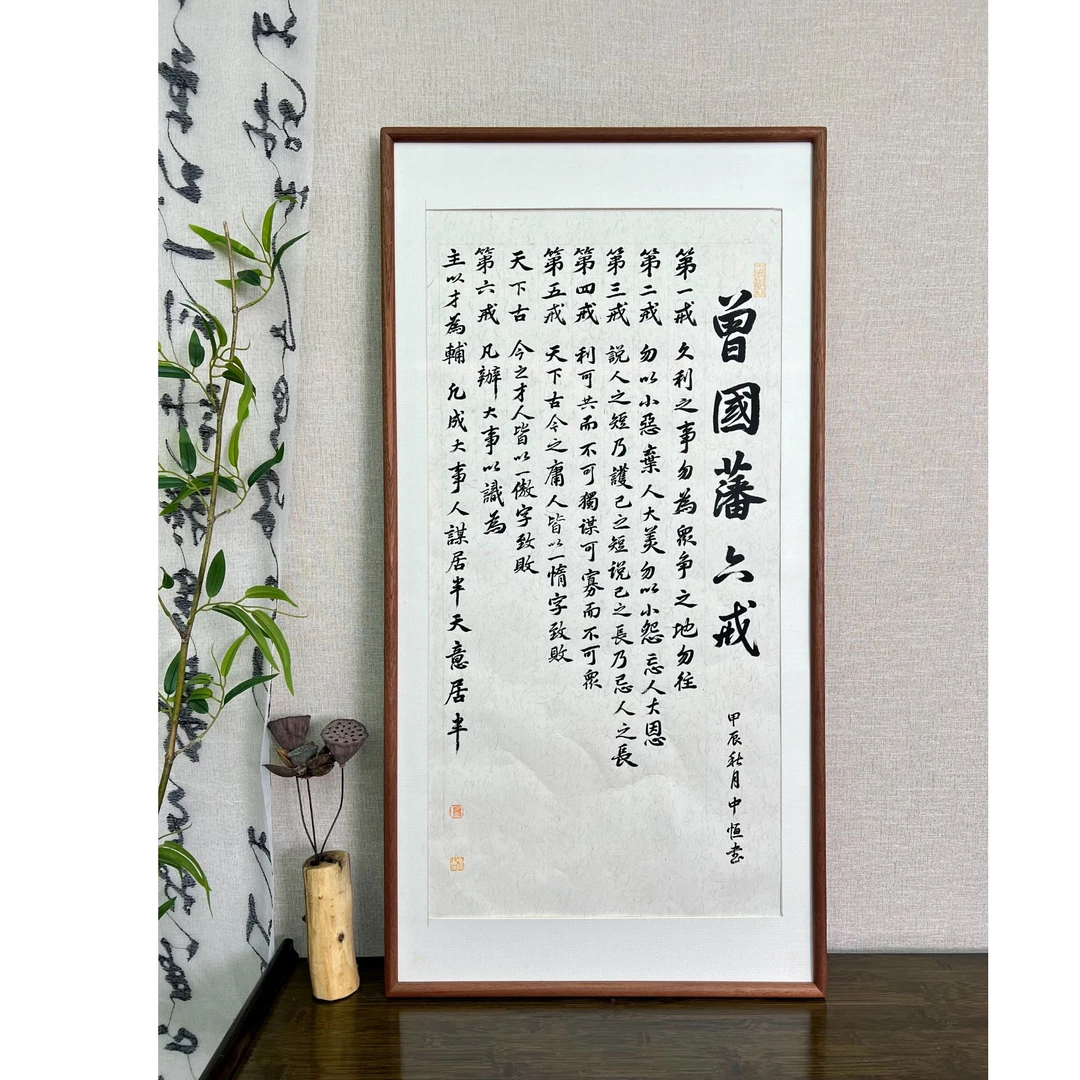 曾國藩六戒
甲辰秋月中恒書
第一戒 久利之事勿為眾争之地勿往
第二戒 勿以小惡棄人大美勿以小怨忘人大恩
第三戒 說人之短乃護己之短说己之長乃忌人之長
第四戒 利可共而不可獨謀可寡而不可眾
第五戒 天下古今之庸人皆以一惰字致敗
天下古今之才人皆以一傲字致敗
第六戒 凡辦大事以識為
主以才為輔 凡成大事人謀居半天意居半